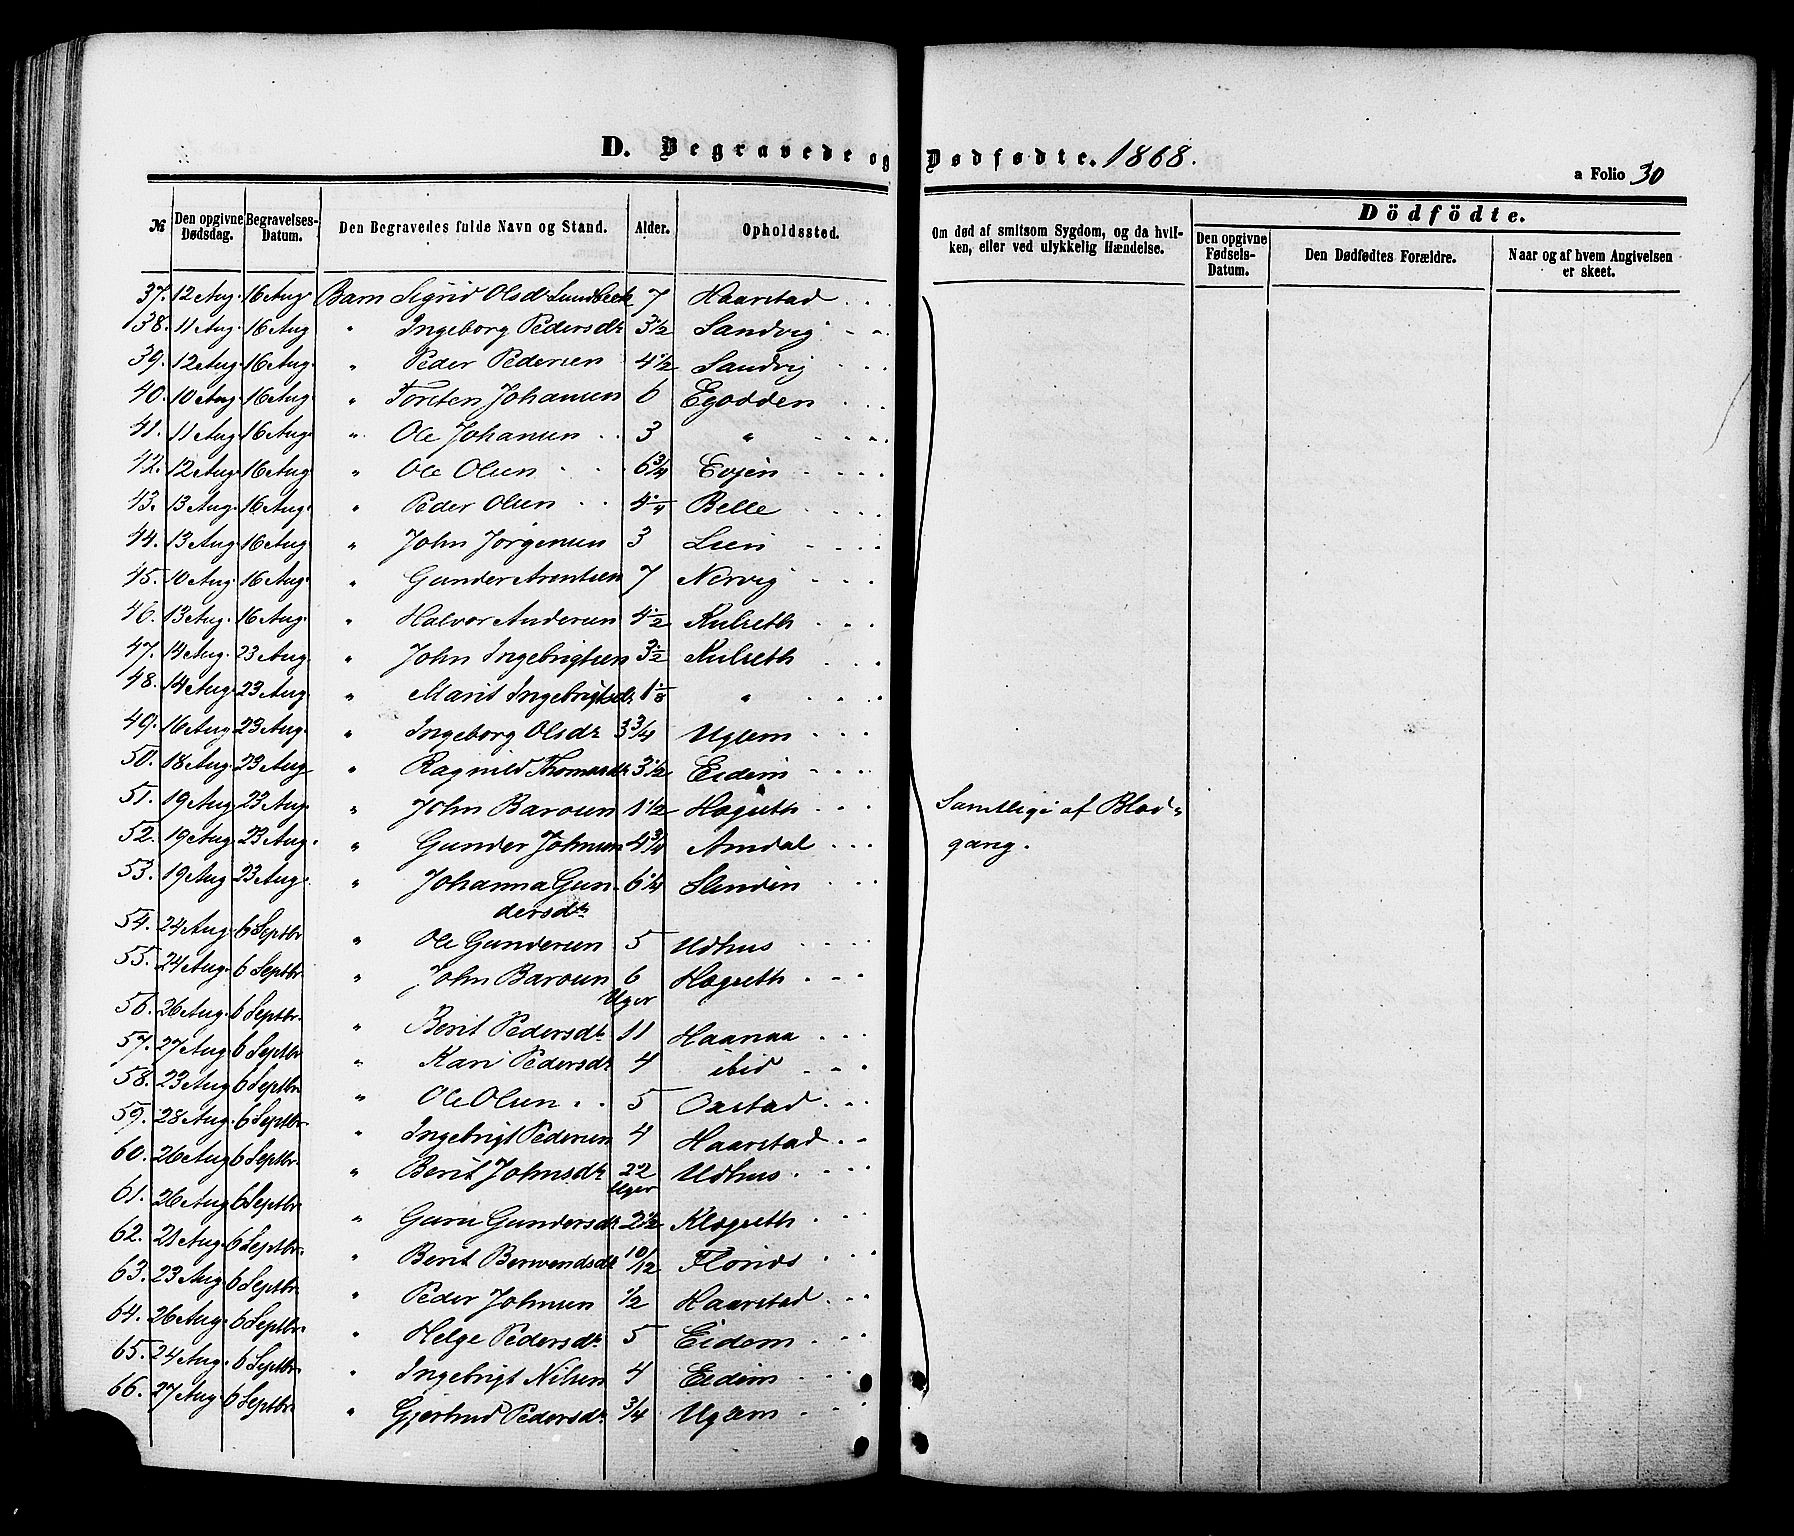 D. Begravede og Dødfødte. 1868.
a Folio 30
№ Den opgivne Dødsdag. Begravelses-Datum. Den Begravedes fulde Navn og Stand. Alder. Opholdssted. Om død af smitsom Sygdom, og da hvilken, eller ved ulykkelig Hændelse. Dödfödte.
Den opgivne Fødsels-Datum. Den Dødfødtes Forældre. Naar og af hvem Angivelsen er skeet.
37. 12 Aug. 16 Aug. Barn Sigrid Olsdr Sundbeck 7 Haarstad
38. 11 Aug. 16 Aug " Ingeborg Pedersdr 3 1/2 Sandvig
39. 12 Aug. 16 Aug. " Peder Pedersen 4 1/2 Sandvig
40. 10 Aug. 16 Aug. " Torsten Johansen 6 Egodden
41. 11 Aug. 16 Aug. " Ole Johansen 3 "
42. 12 Aug. 16 Aug " Ole Olsen 6 3/4 Evjen
43. 13 Aug. 16 Aug. " Peder Olsen 4 1/4 Belle
44. 13 Aug. 16 Aug " John Jörgensen 3 Lien
45. 10 Aug. 16 Aug. " Gunder Arntsen 7 Nervig
46. 13 Aug. 16 Aug. " Halvor Andersen 4 1/2 Kulseth
47. 14 Aug. 23 Aug. " John Ingebrigtsen 3 1/2 Kulseth
48. 14 Aug. 23 Aug. " Marit Ingebrigtsdr 1 1/8 "
49. 16 Aug. 23 Aug. " Ingeborg Olsdr 3 3/4 Uglem
50. 18 Aug. 23 Aug. " Ragnild Thomasdr 3 1/2 Eidem
51. 19 Aug. 23 Aug. " John Barosen 1 1/2 Hogseth Samtlige af Blod-
52. 19 Aug. 23 Aug. " Gunder Johnsen 4 3/4 Amdal gang.
53. 19 Aug 23 Aug. " Johanna Gun-
dersdr 6 1/4 Slinden
54. 24 Aug. 6 Septbr " Ole Gundersen 5 Udhus
55. 24 Aug. 6 Septbr. " John Barosen 6 Uger Hogseth
56. 26 Aug. 6 Septbr. " Berit Pedersdr 11 Haanaa
57. 27 Aug 6 Septbr. " Kari Pedersdr 4 ibid
58. 23 Aug 6 Septbr. " Ole Olsen 5
59. 28 Aug. 6 Septbr. " Ingebrigt Pedersen 4 Haarstad
60. 26 Aug 6 Septbr. " Berit Johnsdr 22 Uger Udhus
61. 26 Aug 6 Septbr. " Guru Gundersdr 2 1/2 Klogseth
62. 21 Aug. 6 Septbr. " Berit Berwendsdr 10/12 Flonæs
63. 23 Aug 6 Septbr. " Peder Johnsen 1/2 Haarstad
64. 26 Aug. 6 Septbr. " Helge Pedersdr 5 Eidem
65. 24 Aug. 6 Septbr. " Ingebrigt Nilsen 4 Eidem
66. 27 Aug. 6 Septbr. " Gjertrud Pedersdr 3/4 Uglem